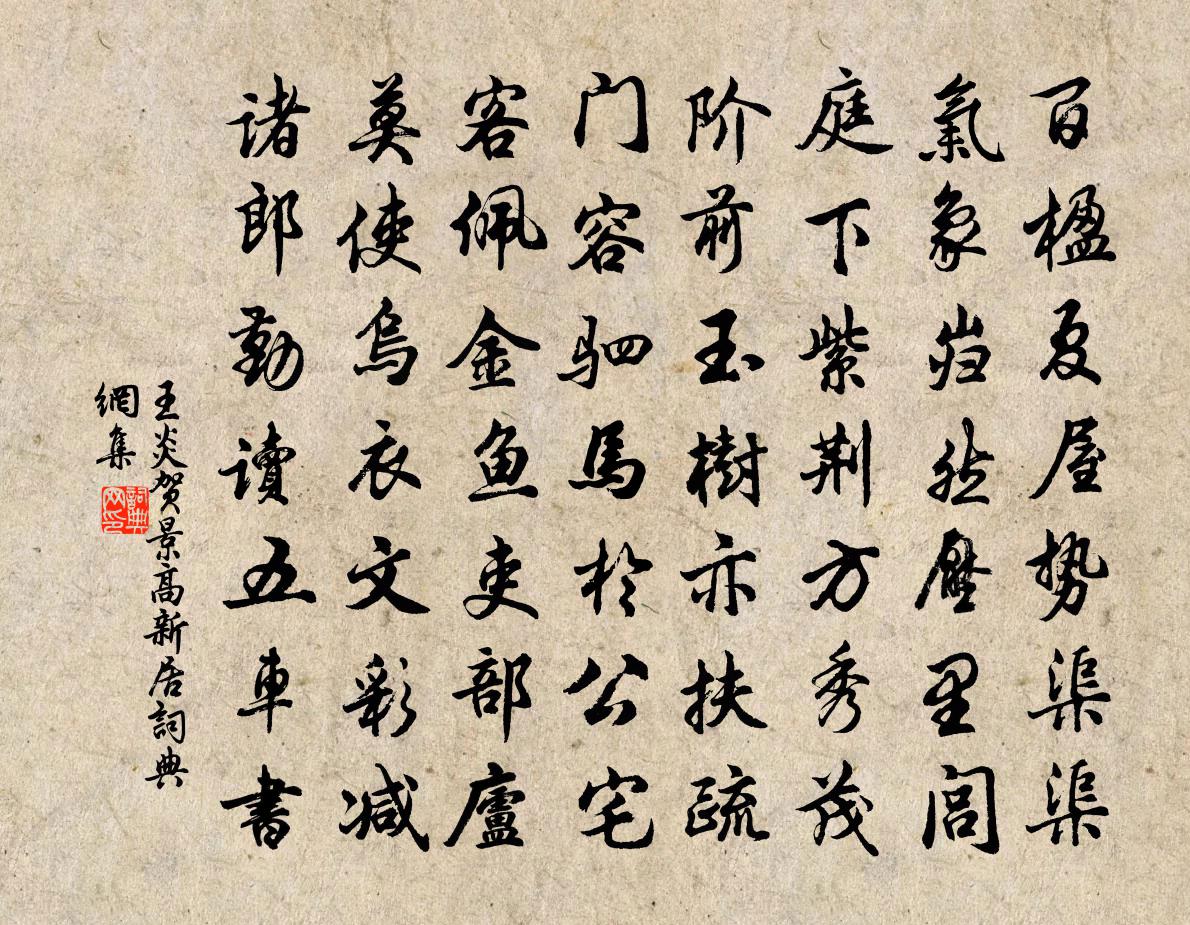 百楹夏屋势渠渠
氣象岿然壓里闾
庭下紫荆方秀茂
阶前玉樹亦扶疏
门容驷馬於公宅
客佩金鱼吏部廬
莫使烏衣文彩减
诸郎勤讀五車書
王炎贺景高新居詞典
網集
詞典
网印